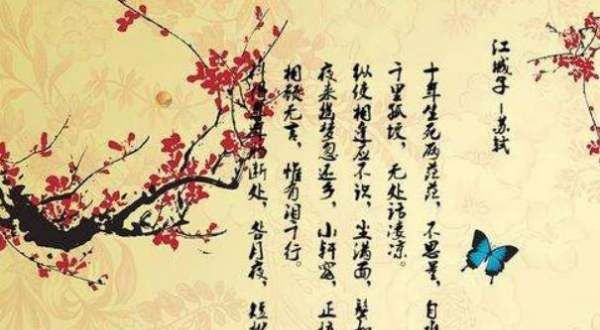 江城子–苏轼
十年生死两茫茫，不思量，自
千里孤坟，无处话凄凉。
纵使相逢应不识，尘满面，鬓
夜来幽梦忽还乡，小轩窗，正
相顾无言，惟有泪千行。
料得年年肠断处，明月夜，短